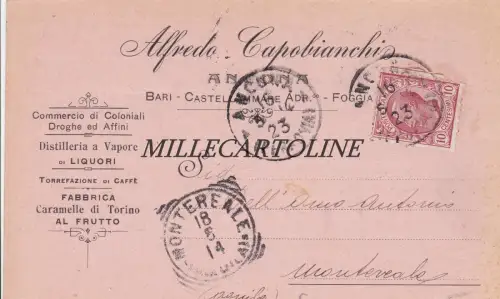 Alfredo Capobianchi
ANCONA
BARI - CASTELLAMMARE ADR. - FOGGIA
Commercio di Coloniali
Droghe ed Affini
Distilleria a Vapore
DI LIQUORI
TORREFAZIONE DI CAFFÈ
FABBRICA
Caramelle di Torino
AL FRUTTO
MILLECARTOLINE
ANCONA
16
23
10
10
ANCONA
23
MONTEREALE
18
5
14
Montereale